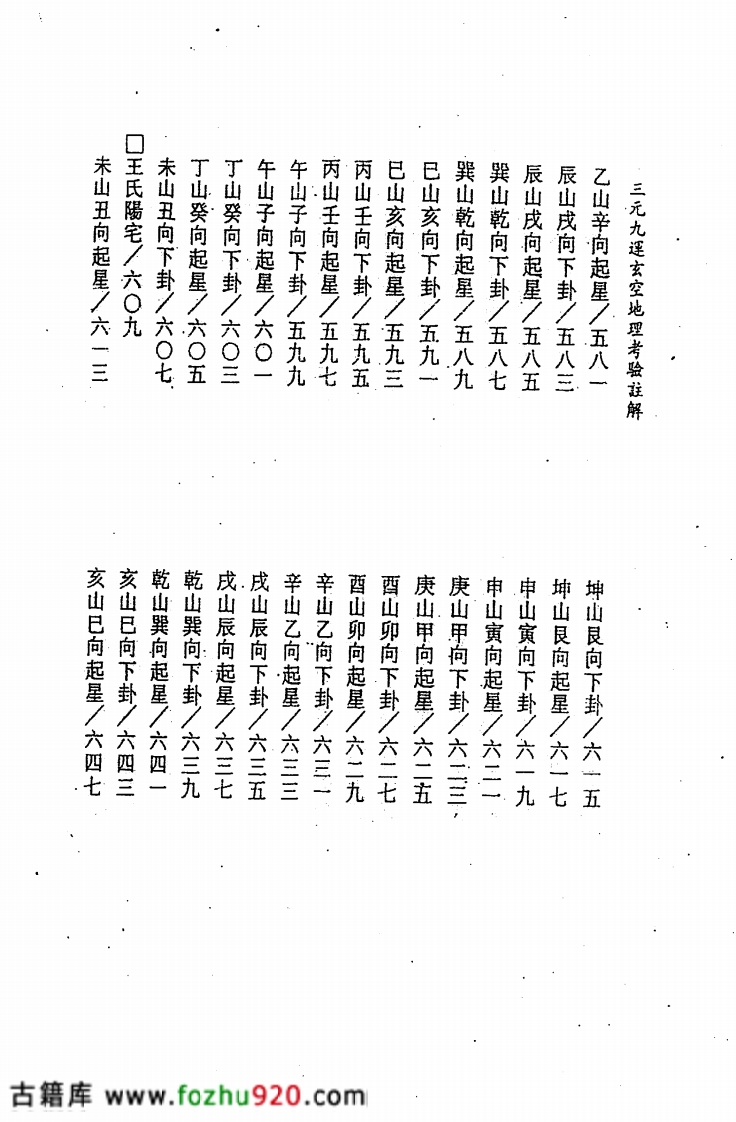 三元九運玄空地理考驗註解
乙山辛向起星/五八一
辰山戌向下卦/五八三
辰山戌向起星/五八五
巽山乾向下卦/五八七
巽山乾向起星/五八九
巳山亥向下卦/五九一
巳山亥向起星/五九三
丙山壬向下卦/五九五
丙山壬向起星/五九七
午山子向下卦/五九九
午山子向起星/六〇一
丁山癸向下卦/六〇三
丁山癸向起星/六〇五
未山丑向下卦/六〇七
□王氏陽宅/六〇九
未山丑向起星/六一三
坤山艮向下卦/六一五
坤山艮向起星/六一七
申山寅向下卦/六一九
申山寅向起星/六二一
庚山甲向下卦/六二三
庚山甲向起星/六二五
酉山卯向下卦/六二七
酉山卯向起星/六二九
辛山乙向下卦/六三一
辛山乙向起星/六三三
戌山辰向下卦/六三五
戌山辰向起星/六三七
乾山巽向下卦/六三九
乾山巽向起星/六四一
亥山巳向下卦/六四三
亥山巳向起星/六四七
古籍库 www.fozhu920.com